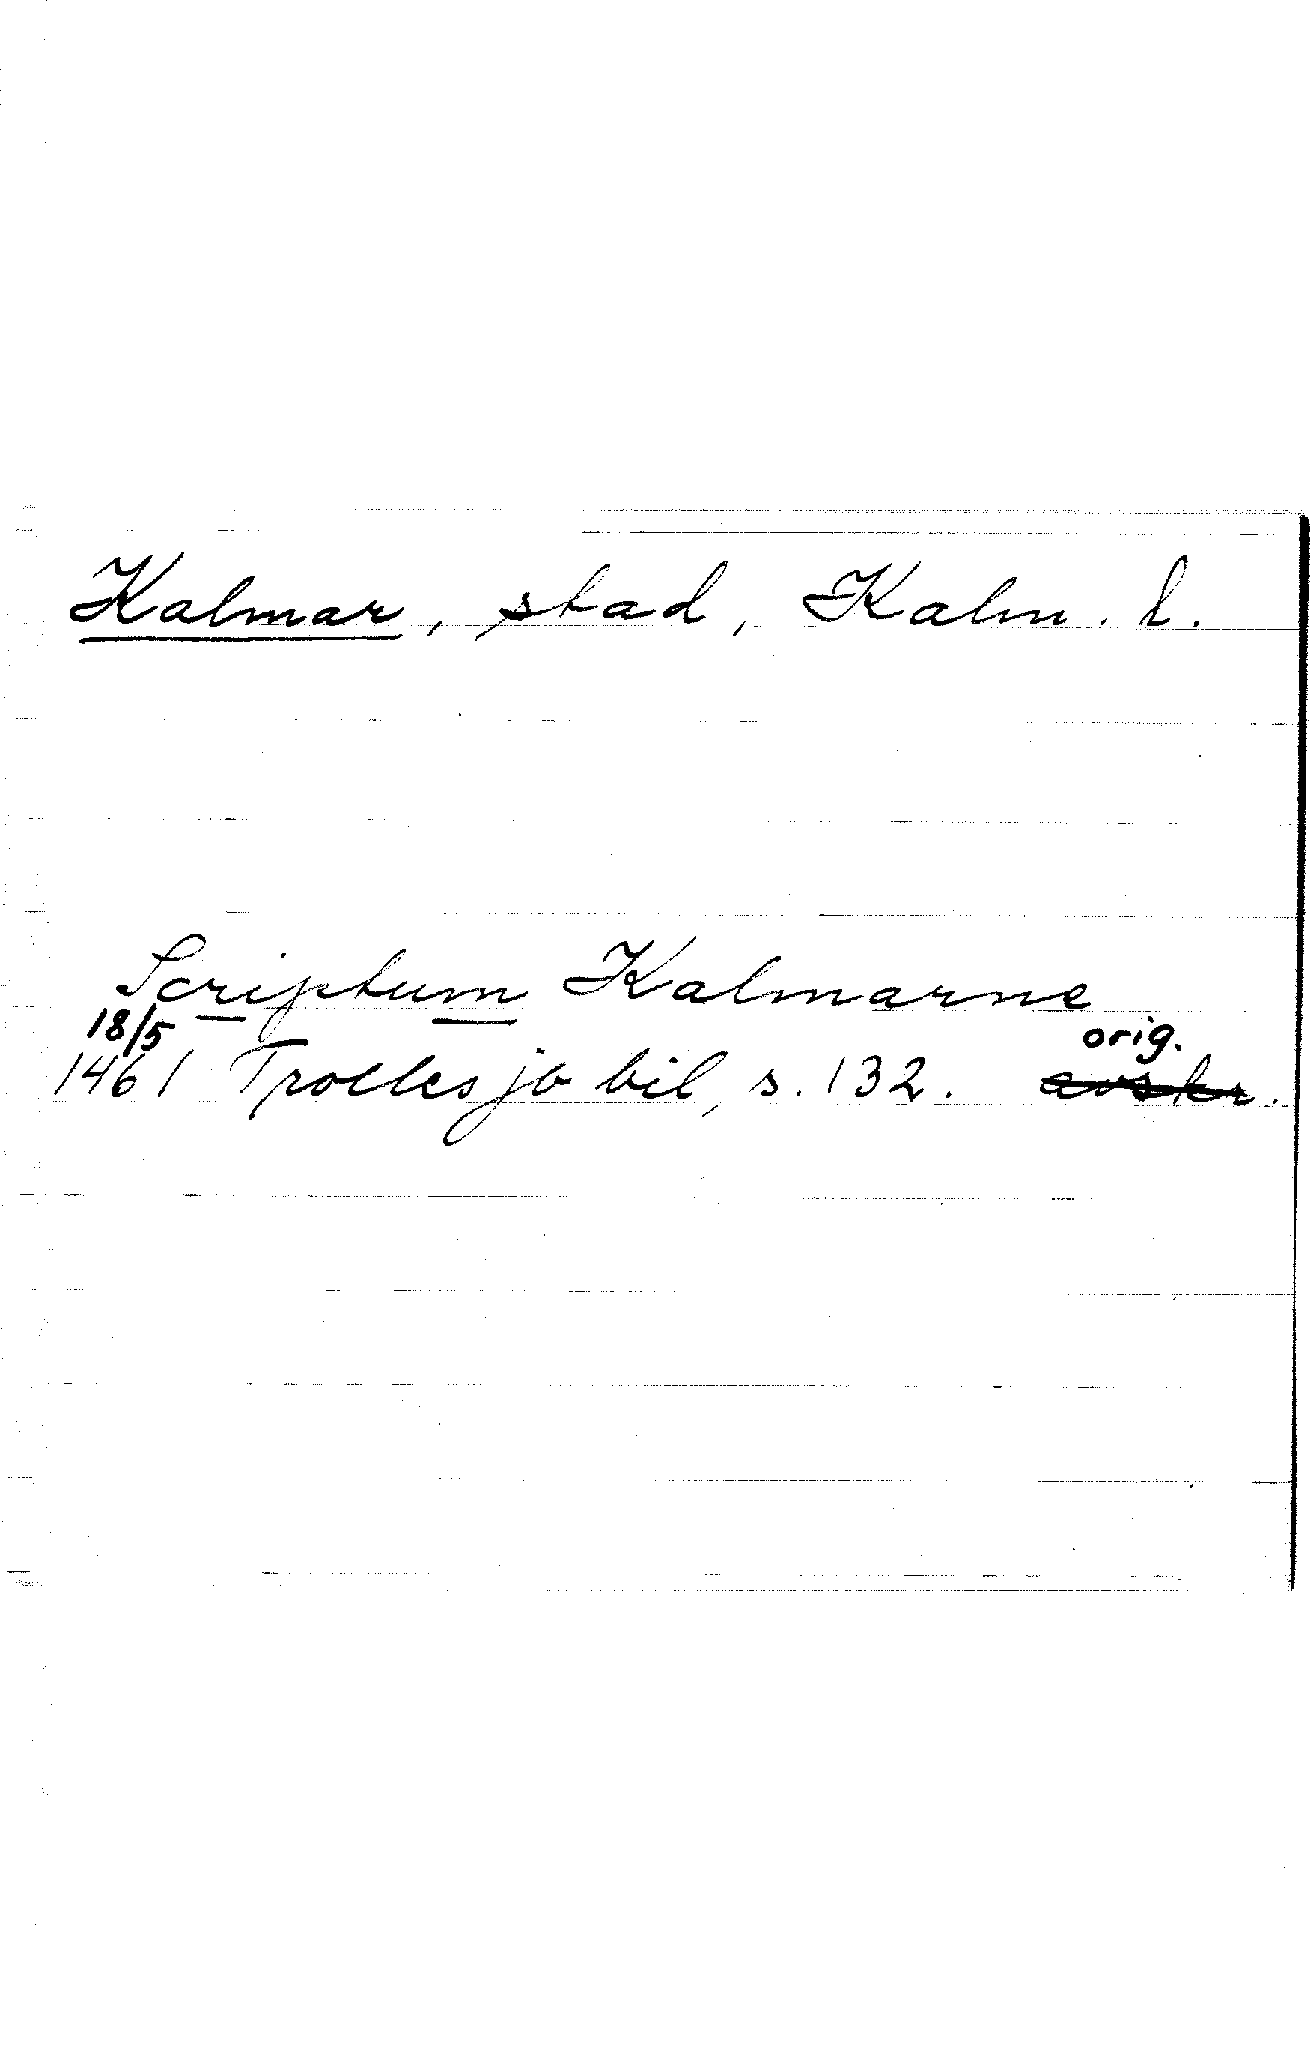 Kalmar, stad, Kalm. l.
Scriptum Kalmarne
18/5 orig.
1461 Trolles jb bil, s. 132. avskr.